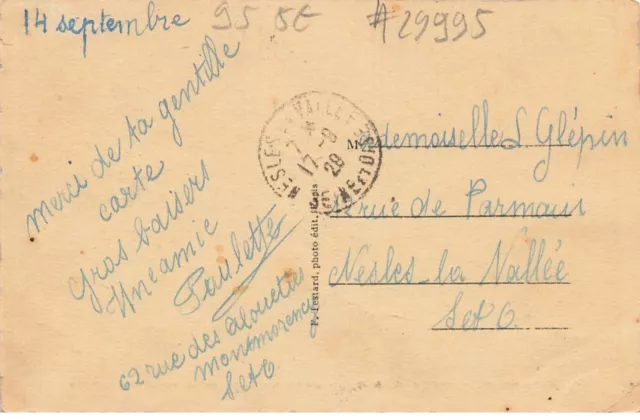 14 septembre
95 5E
#29995
Merci de ta gentille
carte
Gros baisers
Une amie
Paulette
62 rue des Alouettes
Montmorency
S et O
P. Testard, photo édit.
NESLES-LA-VALLÉE
17-9
29
Mademoiselle S Glépin
rue de Parmain
Nesles-la Vallée
S et O